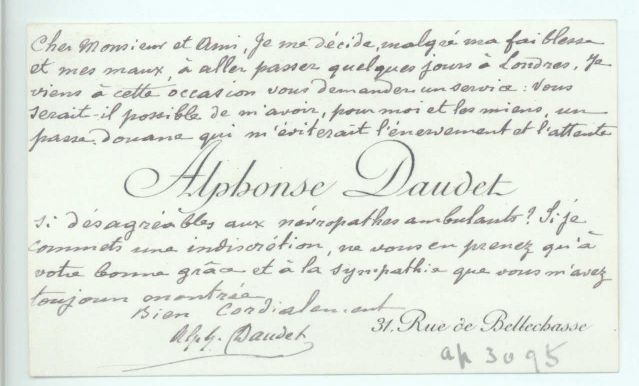 Cher Monsieur et Ami, Je me décide, malgré ma faiblesse
et mes maux, à aller passer quelques jours à Londres. Je
viens à cette occasion vous demander un service : Vous
serait-il possible de m'avoir, pour moi et les miens, un
passe-douane qui m'éviterait l'énervement et l'attente
Alphonse Daudet
si désagréables aux névropathes ambulants ? Si je
commets une indiscrétion, ne vous en prenez qu'à
votre bonne grâce et à la sympathie que vous m'avez
toujours montrée
Bien Cordialement
Alph. Daudet
31, Rue de Bellechasse
ap 3095